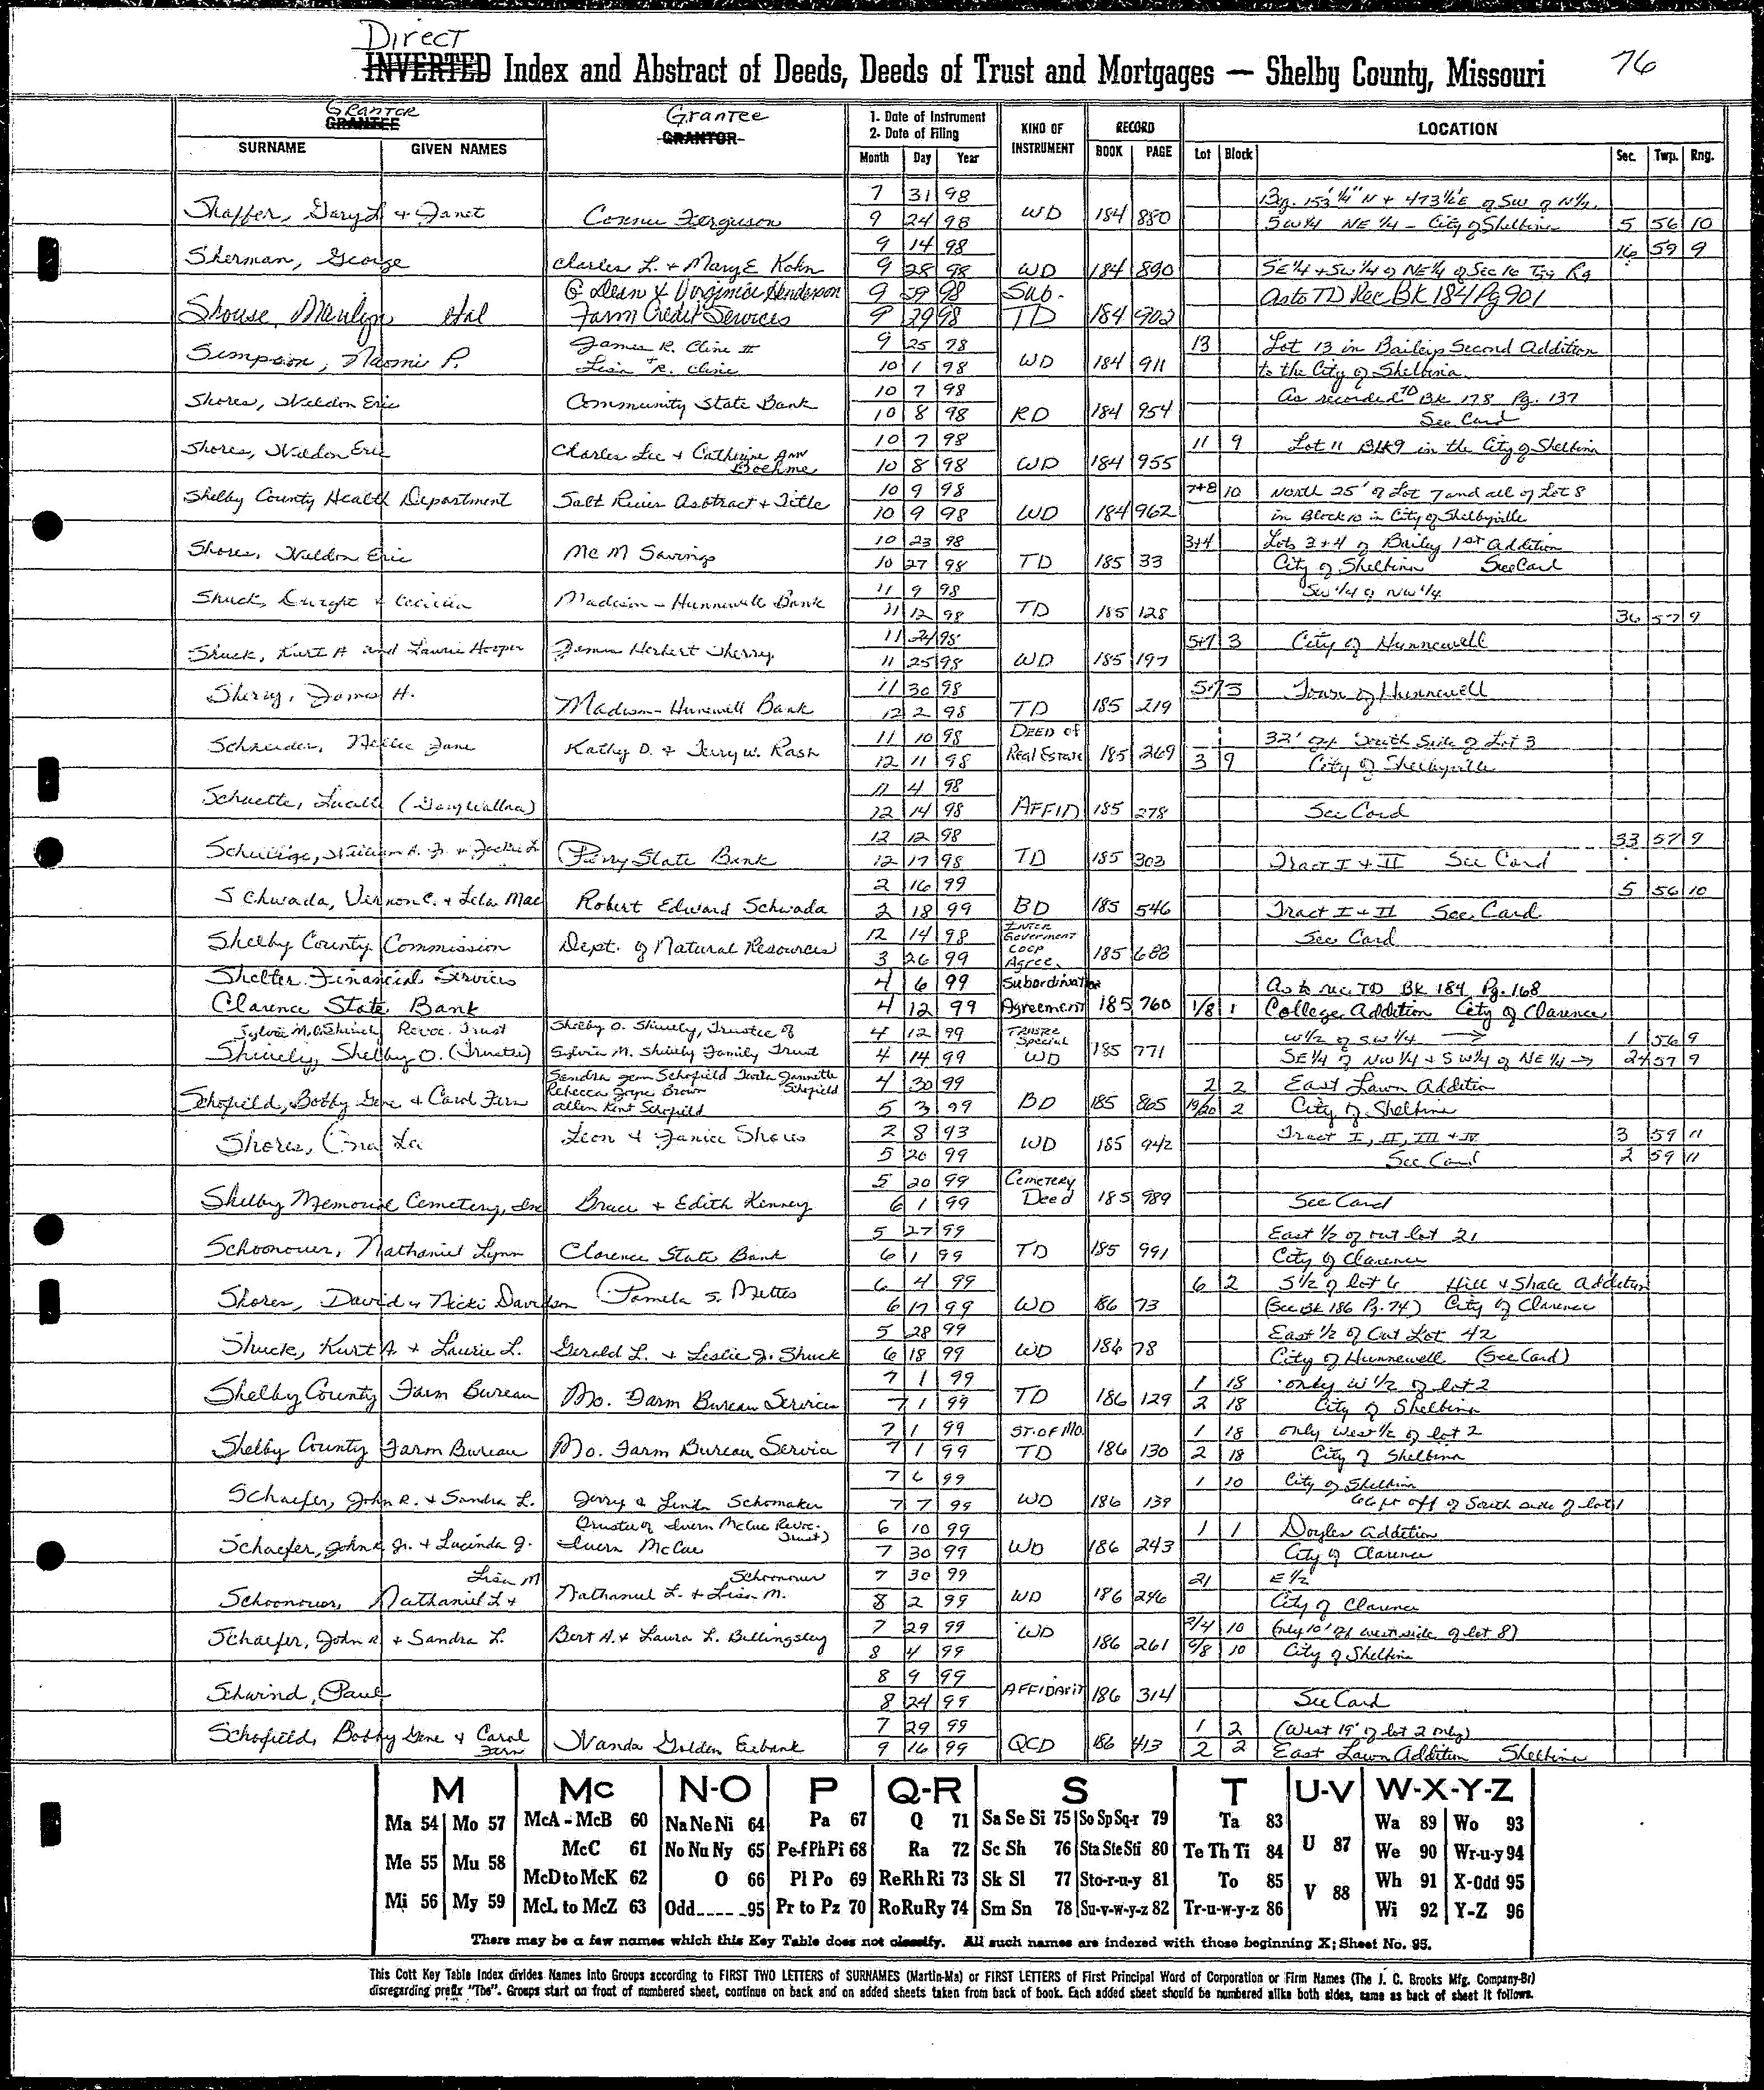 Direct
INVERTED Index and Abstract of Deeds, Deeds of Trust and Mortgages — Shelby County, Missouri 76
GRANTOR Grantee
GRANTEE GRANTOR
1. Date of Instrument
2. Date of Filing
KIND OF INSTRUMENT RECORD LOCATION
SURNAME GIVEN NAMES Month Day Year BOOK PAGE Lot Block Sec. Twp. Rng.
7 31 98 Bg. 153'¼" N + 473½'E of SW of N½
Shaffer, Gary L + Janet Connie Ferguson 9 24 98 WD 184 880 SW¼ NE¼ - City of Shelbina 5 56 10
9 14 98 16 59 9
Sherman, George Charles L. + Mary E Kohn 9 28 98 WD 184 890 SE¼ + SW¼ of NE¼ of Sec 16 T59 R9
G Dean & Virginia Henderson 9 29 98 Sub. As to TD Rec BK 184 Pg 901
Shouse, Marilyn etal Farm Credit Services 9 29 98 TD 184 902
James R. Cline II 9 25 98 13 Lot 13 in Baileys Second Addition
Simpson, Naomi P. + Lisa R. Cline 10 1 98 WD 184 911 to the City of Shelbina
10 7 98 As recorded TD BK 178 Pg. 137
Shores, Weldon Eric Community State Bank 10 8 98 RD 184 954 See Card
10 7 98 11 9 Lot 11 Blk 9 in the City of Shelbina
Shores, Weldon Eric Charles Lee + Catherine Ann Boehme 10 8 98 WD 184 955
10 9 98 7+8 10 North 25' of Lot 7 and all of Lot 8
Shelby County Health Department Salt River Asbtract + Title 10 9 98 WD 184 962 in Block 10 in City of Shelbyville
10 23 98 3+4 Lots 3+4 of Bailey 1st Addition
Shores, Weldon Eric Mc M Savings 10 27 98 TD 185 33 City of Shelbina See Card
11 9 98 SW¼ of NW¼
Shuck, Dwight & Cecilia Madison-Hunnewell Bank 11 12 98 TD 185 128 36 57 9
11 24 98 3 City of Hunnewell
Shuck, Kurt A and Laurie Hooper James Herbert Sherry 11 25 98 WD 185 197
11 30 98 3 Town of Hunnewell
Sherry, James H. Madison-Hunnewell Bank 12 2 98 TD 185 219
11 10 98 Deed of 32' off South Side of Lot 3
Schneider, Nellie Jane Kathy D. + Terry W. Rash 12 11 98 Real Estate 185 269 3 9 City of Shelbyville
11 4 98
Schuette, Lucille 12 14 98 AFFID 185 278 See Card
12 12 98 33 57 9
William A. Jr. + Jackie L Perry State Bank 12 17 98 TD 185 303 Tract I + II See Card
2 16 99 5 56 10
Schwada, Vernon C. + Lela Mae Robert Edward Schwada 2 18 99 BD 185 546 Tract I + II See Card
12 14 98 Inter Goverment See Card
Shelby County Commission Dept. of Natural Resources 3 26 99 Coop Agree. 185 688
Shelter Financial Services 4 6 99 Subordination As to rec. TD BK 184 Pg. 168
Clarence State Bank 4 12 99 Agreement 185 760 1/8 1 College Addition City of Clarence
Sylvia M. Shively Revoc. Trust Shelby O. Shively, Trustee of 4 12 99 Trustee Special W½ of SW¼ → 1 56 9
Shively, Shelby O. (Trustee) Sylvia M. Shively Family Trust 4 14 99 WD 185 771 SE¼ of NW¼ + SW¼ of NE¼ → 24 57 9
Sandra Jean Schofield Twila Jannette Schofield 4 30 99 2 2 East Lawn Addition
Rebecca Joyce Brown
Schofield, Bobby Gene & Carol Fern Allen Kent Schofield 5 3 99 BD 185 865 19/20 2 City of Shelbina
2 8 93 Tract I, II, III + IV 3 59 11
Shores, Leon + Janice Shores 5 20 99 WD 185 942 See Card 2 59 11
5 20 99 Cemetery
Shelby Memorial Cemetery, Inc Bruce + Edith Kinney 6 1 99 Deed 185 989 See Card
5 27 99 East ½ of out lot 21
Schoonover, Nathaniel Lynn Clarence State Bank 6 1 99 TD 185 991 City of Clarence
6 4 99 6 2 S½ of lot 6 Hill & Shale Addition
Shores, David & Nicki Davidson Pamela S. Mettes 6 17 99 WD 186 73 (See Bk 186 Pg. 74) City of Clarence
5 28 99 East ½ of Out Lot 42
Shuck, Kurt A. + Laurie L. Gerald L. + Leslie J. Shuck 6 18 99 WD 186 78 City of Hunnewell (See Card)
7 1 99 1 18 only W½ of lot 2
Shelby County Farm Bureau Mo. Farm Bureau Services 7 1 99 TD 186 129 2 18 City of Shelbina
7 1 99 ST. OF MO. 1 18 only West ½ of lot 2
Shelby County Farm Bureau Mo. Farm Bureau Service 7 1 99 TD 186 130 2 18 City of Shelbina
7 6 99 1 10 City of Shelbina
Schaefer, John R. + Sandra L. Jerry & Linda Schomaker 7 7 99 WD 186 139 66 ft off of South side of lot 1
(Trustee of Ivern McCue Revoc. Trust) 6 10 99 1 1 Doyles addition
Schaefer, John R Jr. + Lucinda J. Ivern McCue 7 30 99 WD 186 243 City of Clarence
Lisa M Schoonover 7 30 99 21 E½
Schoonover, Nathaniel L + Nathaniel L. + Lisa M. 8 2 99 WD 186 246 City of Clarence
7 29 99 10 (only 10' off west side of lot 8)
Schaefer, John R + Sandra L. Bert A. + Laura L. Billingsley 8 4 99 WD 186 261 5/8 10 City of Shelbina
8 9 99
Schwind, Paul 8 24 99 AFFIDAVIT 186 314 See Card
7 29 99 1 2 (West 19' of lot 2 only)
Schofield, Bobby Gene & Carol Fern Wanda Golden Eubank 9 16 99 QCD 186 413 2 2 East Lawn Addition Shelbina
M Mc N-O P Q-R S T U-V W-X-Y-Z
Ma 54 Mo 57 McA - McB 60 Na Ne Ni 64 Pa 67 Q 71 Sa Se Si 75 So Sp Sq-r 79 Ta 83 Wa 89 Wo 93
Me 55 Mu 58 McC 61 No Nu Ny 65 Pe-f Ph Pi 68 Ra 72 Sc Sh 76 Sta Ste Sti 80 Te Th Ti 84 U 87 We 90 Wr-u-y 94
McD to McK 62 O 66 Pl Po 69 Re Rh Ri 73 Sk Sl 77 Sto-r-u-y 81 To 85 V 88 Wh 91 X-Odd 95
Mi 56 My 59 McL to McZ 63 Odd 95 Pr to Pz 70 Ro Ru Ry 74 Sm Sn 78 Su-v-w-y-z 82 Tr-u-w-y-z 86 Wi 92 Y-Z 96
There may be a few names which this Key Table does not classify. All such names are indexed with those beginning X; Sheet No. 95.
This Cott Key Table Index divides Names into Groups according to FIRST TWO LETTERS of SURNAMES (Martin-Ma) or FIRST LETTERS of First Principal Word of Corporation or Firm Names (The J. C. Brooks Mfg. Company-Br)
disregarding prefix "The". Groups start on front of numbered sheet, continue on back and on added sheets taken from back of book. Each added sheet should be numbered alike both sides, same as back of sheet it follows.